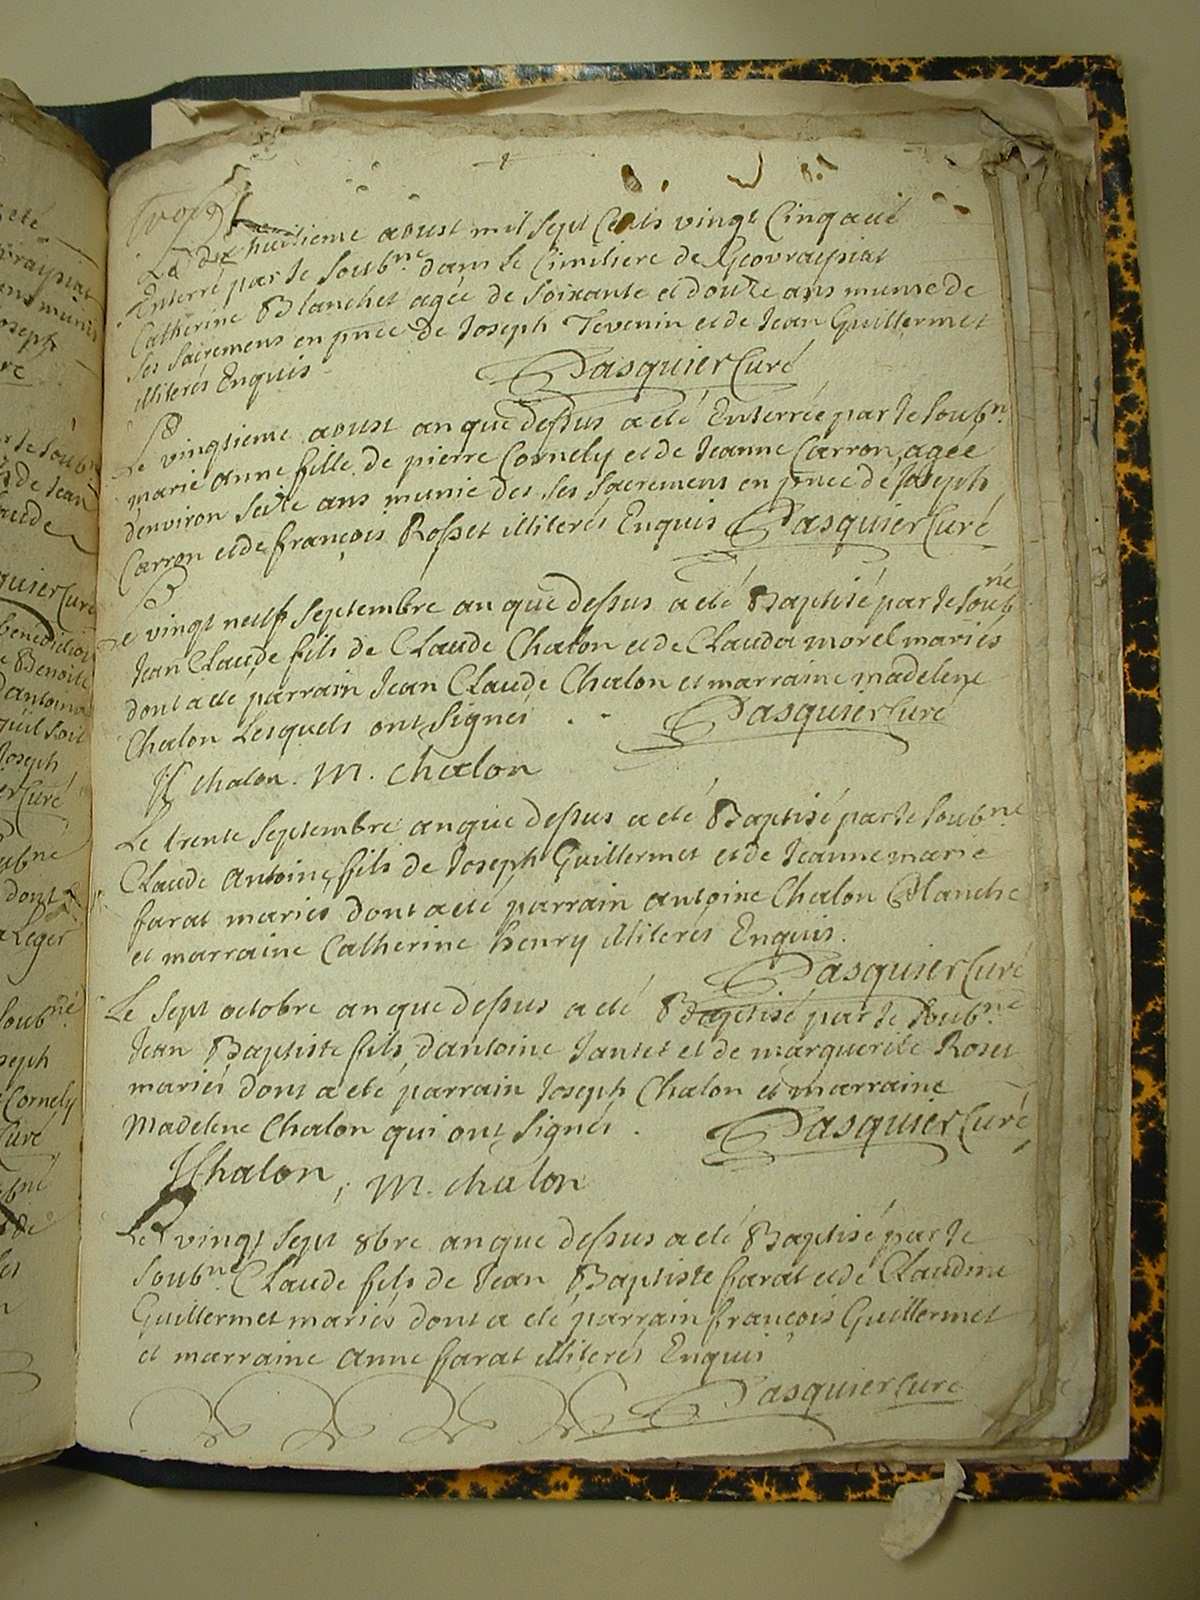 Le dix huitieme aoust mil sept Cents vingt Cinq a eté
Enterré par le soubne dans le Cimitiere de Geovraysiat
Catherine Blanchet agée de soixante et douze ans munie de
ses sacremens en pnce de Joseph Tevenin et de Jean Guillermet
illiterés Enquis
Pasquier Curé
Le vingtieme aoust an que dessus a eté Enterrée par le soubn
marie anne fille de pierre Cornely et de Jeanne Carron agée
denviron seize ans munie des ses sacremens en pnce de Joseph
Carron et de françois Rosset illiterés Enquis Pasquier Curé
Le vingt neuf septembre an que dessus a eté Baptisé par le soubné
Jean Claude fils de Claude Chalon et de Clauda morel mariés
dont a eté parrain Jean Claude Chalon et marraine madelene
Chalon Lesquels ont signés Pasquier Curé
chalon. M. chalon
Le trente septembre an que dessus a eté Baptisé par le soubné
Claude Antoine fils de Joseph Guillermet et de Jeanne marie
farat mariés dont a eté parrain antoine Chalon Blanche
et marraine Catherine henry illiterés Enquis.
Pasquier Curé
Le sept octobre an que dessus a eté Baptisé par le soubne
Jean Baptiste fils dantoine Jantet et de marguerite Roset
mariés dont a eté parrain Joseph Chalon et marraine
Madelene Chalon qui ont signés. Pasquier Curé
JChalon, M. chalon
Le vingt sept 8bre an que dessus a eté Baptisé par le
soubne Claude fils de Jean Baptiste farat et de Claudine
Guillermet mariés dont a eté parrain françois Guillermet
et marraine Anne farat illiterés Enquis
Pasquier Curé